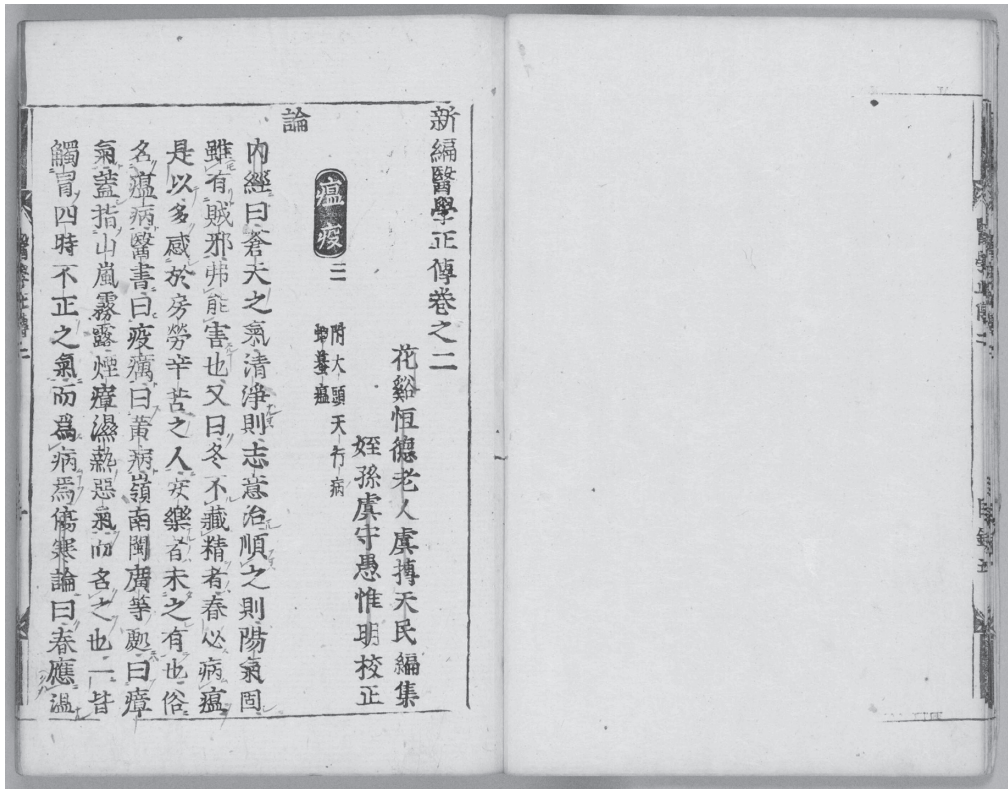 新編醫學正傳卷之二
花谿恒德老人虞摶天民編集
姪孫虞守愚惟明校正
瘟疫 三 附大頭天行病
蝦蟇瘟
論
內經曰蒼天之氣清淨則志意治順之則陽氣固
雖有賊邪弗能害也又曰冬不藏精者春必病瘟
是以多感於房勞辛苦之人安樂者未之有也俗
名瘟病醫書曰疫癘曰黃病嶺南閩廣等處曰瘴
氣蓋指山嵐霧露煙瘴濕熱惡氣而名之也一皆
觸冒四時不正之氣而爲病焉傷寒論曰春應溫